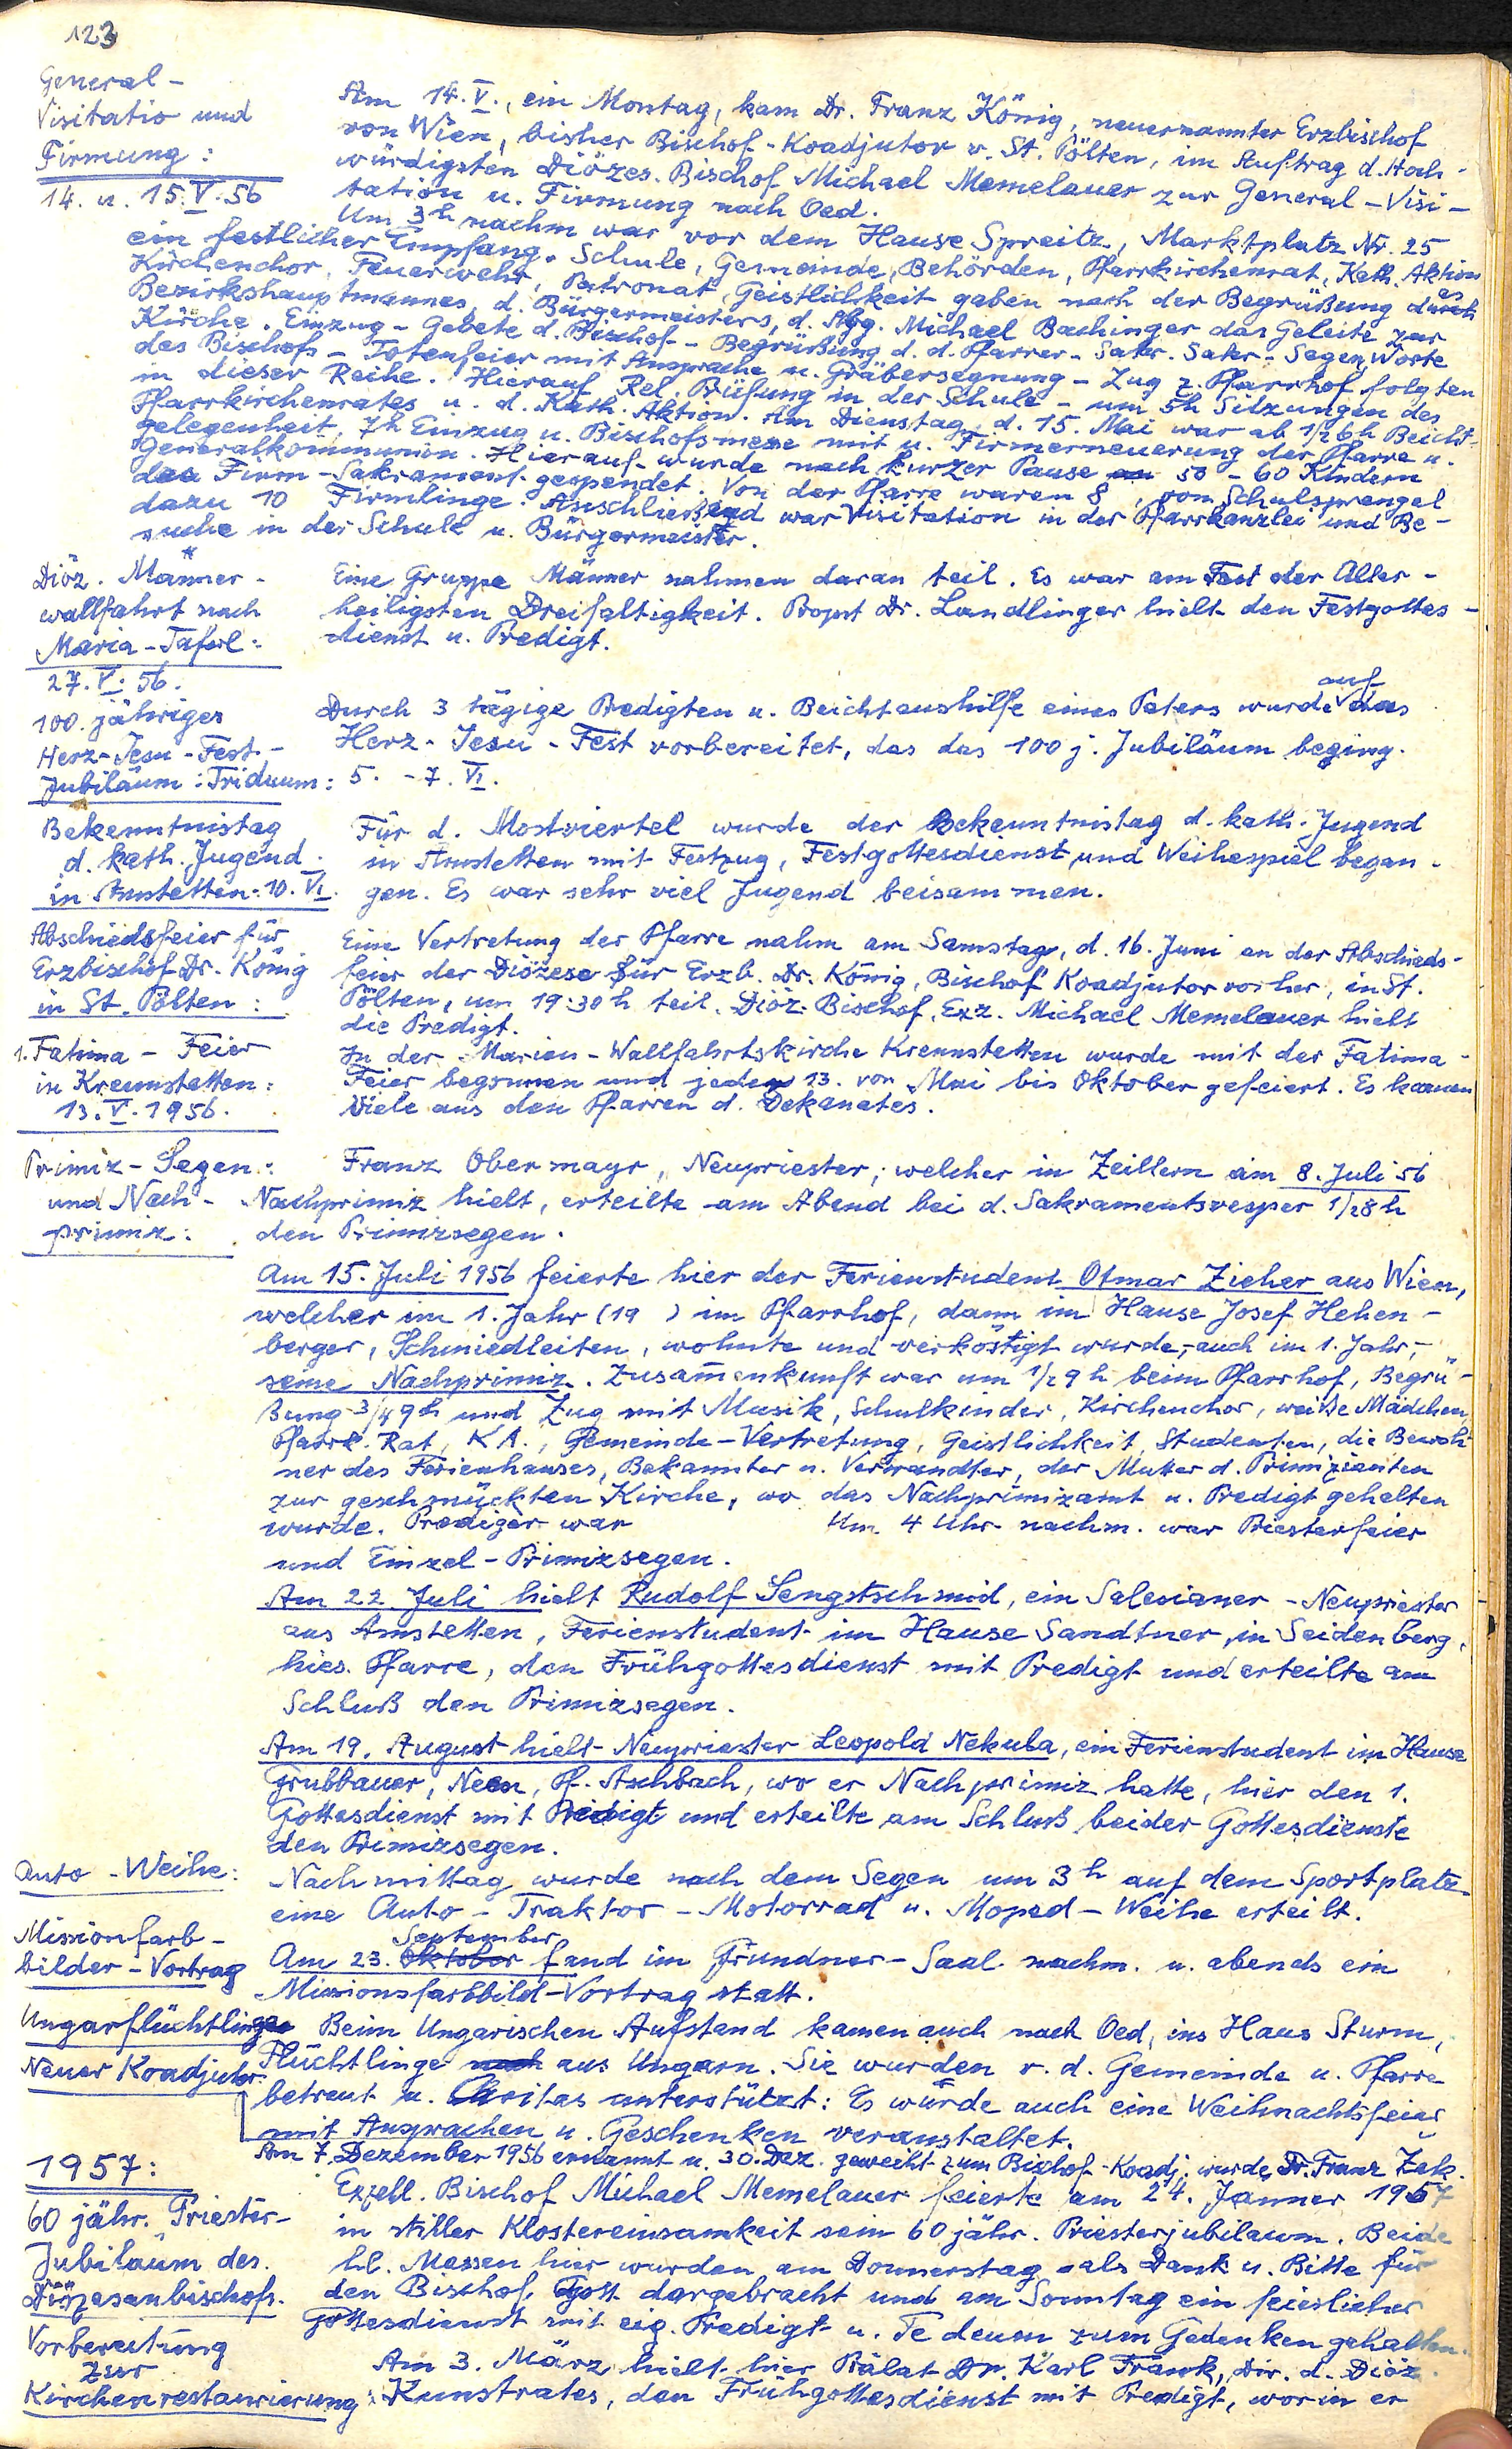 123
General-
Visitatio und
Firmung:
14. u. 15. V. 56
Am 14. V., ein Montag, kam Dr. Franz König, neuernannter Erzbischof
von Wien, bisher Bischof-Koadjutor v. St. Pölten, im Auftrag d. Hoch-
würdigsten Diözes. Bischof Michael Memelauer zur General-Visi-
tation u. Firmung nach Oed.
Um 3h nachm war vor dem Hause Spreitz, Marktplatz Nr. 25
ein festlicher Empfang. Schule, Gemeinde, Behörden, Pfarrkirchenrat, Kath. Aktion
Kirchenchor, Feuerwehr, Patronat, Geistlichkeit gaben nach der Begrüßung durch
Bezirkshauptmannes, d. Bürgermeisters, d. Abg. Michael Bachinger das Geleite zur
Kirche. Einzug - Gebete d. Bischof - Begrüßung d. d. Pfarrer - Sakr. Segen, Worte
des Bischofs - Totenfeier mit Ansprache u. Gräbersegnung - Zug z. Pfarrhof folgten
in dieser Reihe. Hierauf Rel. Prüfung in der Schule - um 5h Sitzungen des
Pfarrkirchenrates u. d. Kath. Aktion. Am Dienstag, d. 15. Mai war ab 1/2 6h Beicht-
gelegenheit, 7h Einzug u. Bischofsmesse mit u. Firmerneuerung der Pfarre u.
Generalkommunion. Hierauf wurde nach kurzer Pause 50 - 60 Kindern
das Firm-Sakrament gespendet. Von der Pfarre waren 8, vom Schulsprengel
dazu 10 Firmlinge. Anschließend war Visitation in der Pfarrkanzlei und Be-
suche in der Schule u. Bürgermeister.
Diöz. Männer-
wallfahrt nach
Maria-Taferl:
27. V. 56.
Eine Gruppe Männer nahmen daran teil. Es war am Fest der Aller-
heiligsten Dreifaltigkeit. Propst Dr. Landlinger hielt den Festgottes-
dienst u. Predigt.
100. jähriges
Herz-Jesu-Fest-
Jubiläum: Triduum:
Durch 3 tägige Predigten u. Beichtaushilfe eines Paters wurde auf das
Herz-Jesu-Fest vorbereitet, das das 100 j. Jubiläum beging.
5. - 7. VI.
Bekenntnistag
d. kath. Jugend
in Amstetten: 10. VI.
Für d. Mostviertel wurde der Bekenntnistag d. kath. Jugend
in Amstetten mit Festzug, Festgottesdienst und Weihespiel began-
gen. Es war sehr viel Jugend beisammen.
Abschiedsfeier für
Erzbischof Dr. König
in St. Pölten:
Eine Vertretung der Pfarre nahm am Samstag, d. 16. Juni an der Abschieds-
feier der Diözese für Erzb. Dr. König, Bischof Koadjutor vorher, in St.
Pölten, um 19:30 h teil. Diöz. Bischof, Exz. Michael Memelauer hielt
die Predigt.
1. Fatima - Feier
in Krennstetten:
13. V. 1956.
In der Marien-Wallfahrtskirche Krennstetten wurde mit der Fatima-
Feier begonnen und jeden 13. von Mai bis Oktober gefeiert. Es kamen
Viele aus den Pfarren d. Dekanates.
Primiz-Segen:
und Nach-
primiz:
Franz Obermayr, Neupriester, welcher in Zeillern am 8. Juli 56
Nachprimiz hielt, erteilte am Abend bei d. Sakramentsvesper 1/2 8 h
den Primizsegen.
Am 15. Juli 1956 feierte hier der Ferienstudent Otmar Zieher aus Wien,
welcher im 1. Jahr (19 ) im Pfarrhof, dann im Hause Josef Hehen-
berger, Schmiedleiten, wohnte und verköstigt wurde, auch im 1. Jahr,-
seine Nachprimiz. Zusammenkunft war um 1/2 9 h beim Pfarrhof, Begrü-
ßung 3/4 9h und Zug mit Musik, Schulkinder, Kirchenchor, weiße Mädchen,
Pfarrk. Rat, KA., Gemeinde-Vertretung, Geistlichkeit, Studenten, die Bewoh-
ner des Ferienhauses, Bekannter u. Verwandter, der Mutter d. Primizianten
zur geschmückten Kirche, wo das Nachprimizamt u. Predigt gehalten
wurde. Prediger war Um 4 Uhr nachm. war Priesterfeier
und Einzel-Primizsegen.
Am 22. Juli hielt Rudolf Sengstschmid, ein Salesianer-Neupriester
aus Amstetten, Ferienstudent im Hause Sandtner, in Seidenberg,
hies. Pfarre, den Frühgottesdienst mit Predigt und erteilte am
Schluß den Primizsegen.
Am 19. August hielt Neupriester Leopold Nekula, ein Ferienstudent im Hause
Grubbauer, Pf. Aschbach, wo er Nachprimiz hatte, hier den 1.
Gottesdienst mit Predigt und erteilte am Schluß beider Gottesdienste
den Primizsegen.
Auto-Weihe:
Nachmittag wurde nach dem Segen um 3h auf dem Sportplatz
eine Auto-Traktor-Motorrad u. Moped-Weihe erteilt.
Missionfarb-
bilder-Vortrag
September
Am 23. Oktober fand im Grundner-Saal nachm. u. abends ein
Missionsfarbbild-Vortrag statt.
Ungarflüchtlinge
Beim Ungarischen Aufstand kamen auch nach Oed, ins Haus Sturm,
Flüchtlinge nach aus Ungarn. Sie wurden v. d. Gemeinde u. Pfarre
betreut u. Caritas unterstützt: Es wurde auch eine Weihnachtsfeier
mit Ansprachen u. Geschenken veranstaltet.
Neuer Koadjutor.
Am 7. Dezember 1956 ernannt u. 30. Dez. geweiht zum Bischof-Koadj. wurde Dr. Franz Zak.
1957:
60 jähr. Priester-
Jubiläum des
Diözesanbischofs.
Exzell. Bischof Michael Memelauer feierte am 24. Jänner 1957
in stiller Klostereinsamkeit sein 60 jähr. Priesterjubiläum. Beide
hl. Messen hier wurden am Donnerstag als Dank u. Bitte für
den Bischof, Gott dargebracht und am Sonntag ein feierlicher
Gottesdienst mit eig. Predigt u. Te deum zum Gedenken gehalten.
Vorbereitung
zur
Kirchenrestaurierung:
Am 3. März hielt hier Prälat Dr. Karl Frank, Dir. d. Diöz.
Kunstrates, den Frühgottesdienst mit Predigt, worin er